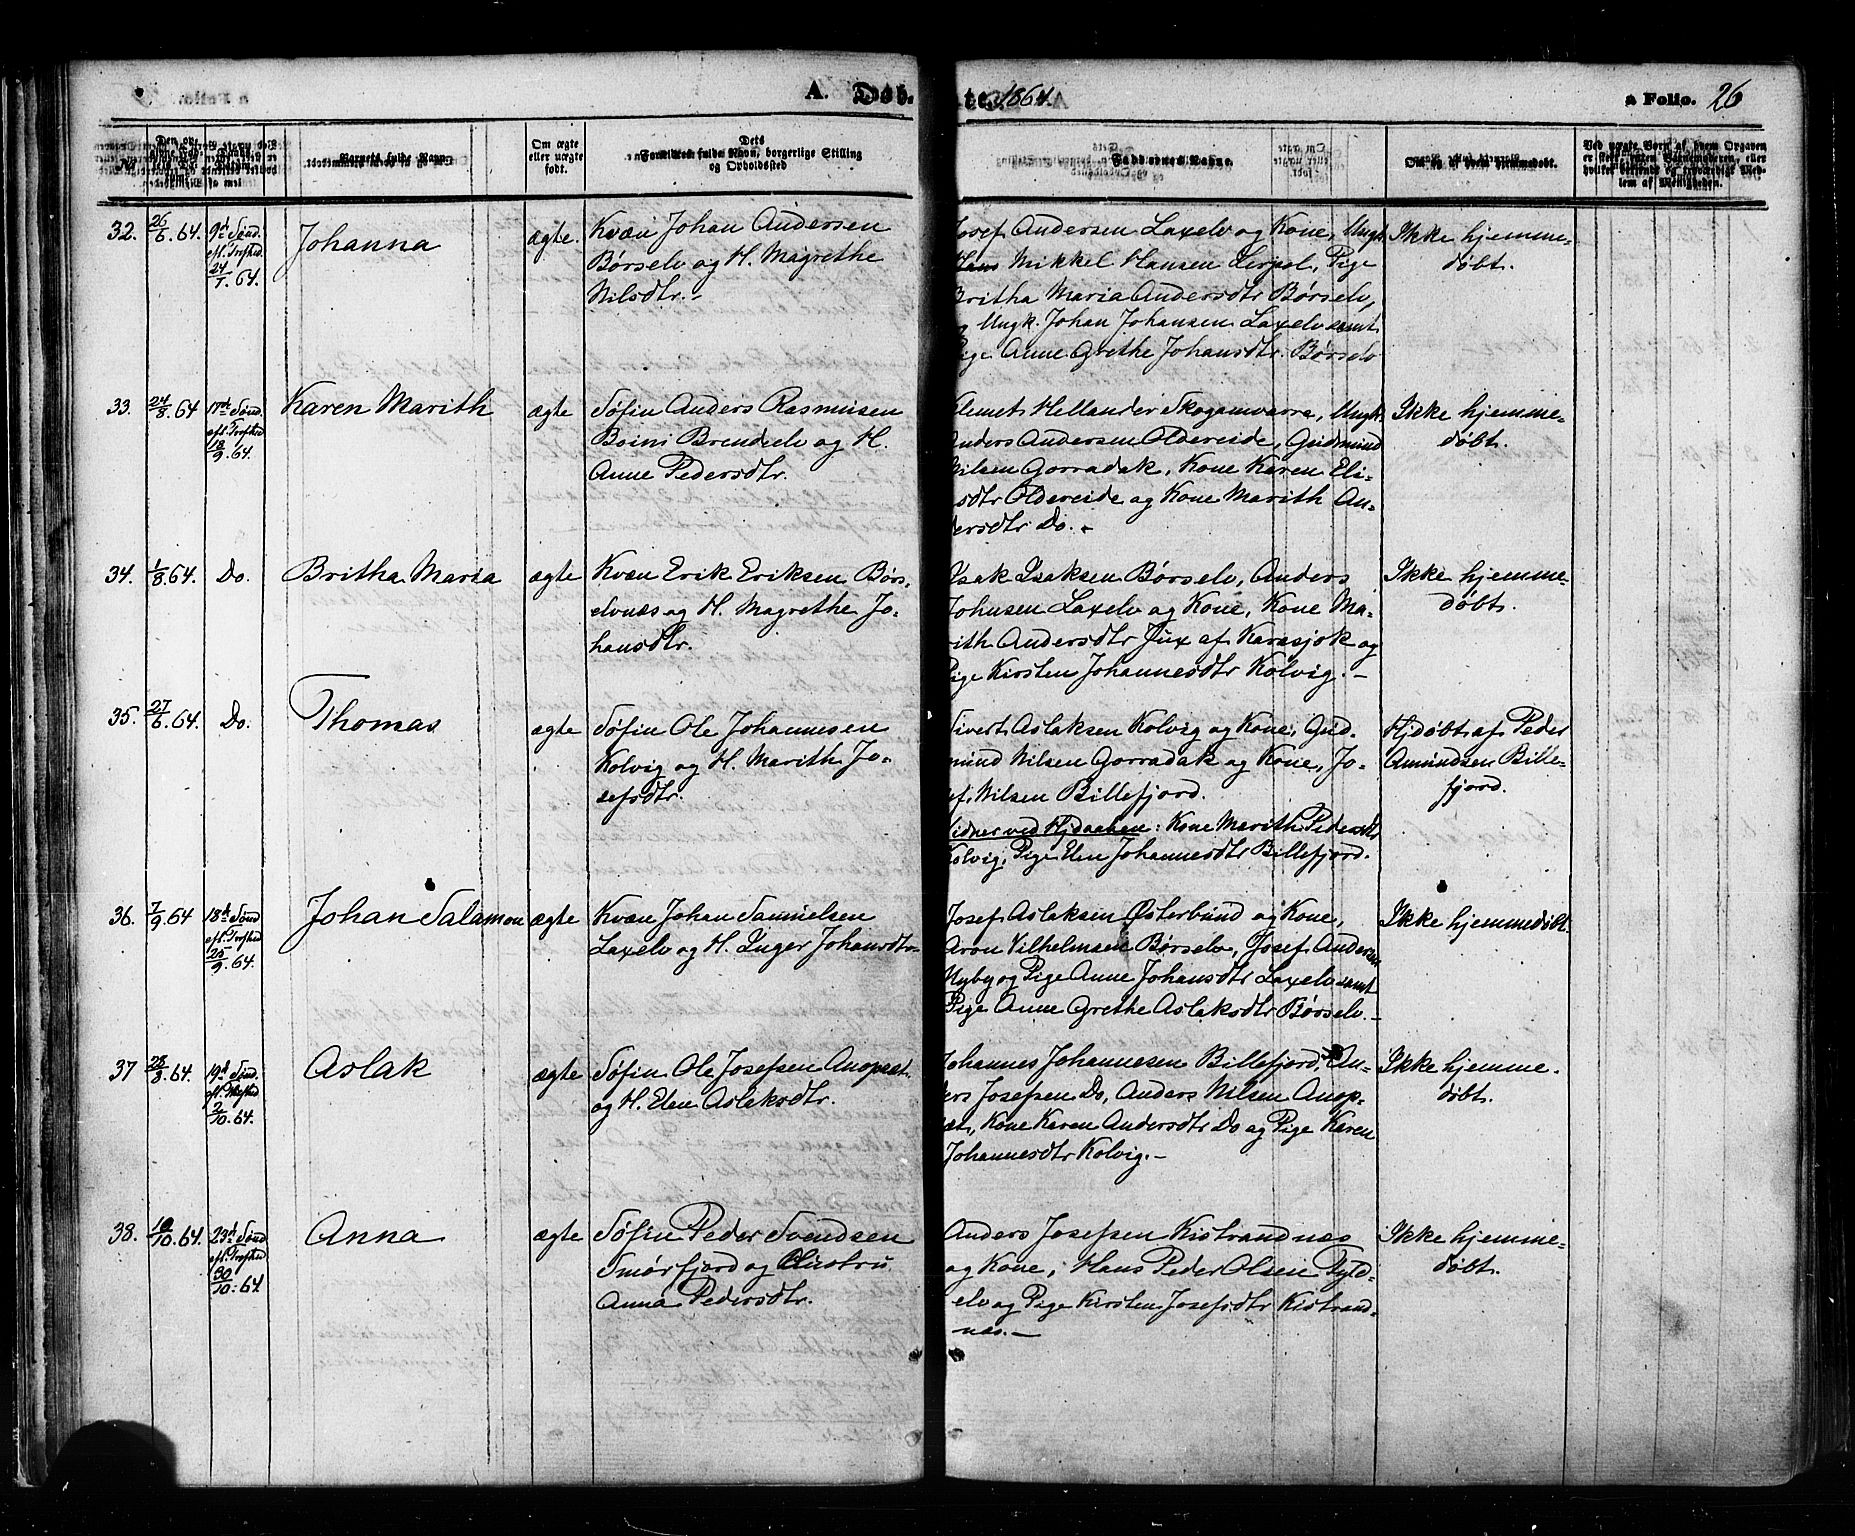 A. Døb
te. 1864.
a Folio. 26
No.
Barnets fulde Navn.
Om ægte
eller uægte
født.
Dets
Forældres fulde Navn, borgerlige Stilling
og Opholdsted
Faddernes Navne.
Om og af hvem hjemmedøbt.
32. 26/6. 64. 9d. Sønd.
eft. Trefhed.
24/7. 64.
Johanna
ægte.
Kvæn Johan Andersen
Børselv og H. Magrethe
Nilsdtr. -
Josef Andersen Laxelv og Kone, Ungk.
Mikkel Hansen Lerpol, Pige
Britha Maria Andersdtr Børselv,
Ungk. Johan Johansen Laxelv samt
Pige Anne Grethe Johansdtr. Børselv
Ikke hjemme-
døbt.
33. 24/8 64 17de Sønd.
eft. Trefhed
18/9. 64.
Karen Marith
ægte
Søfin Anders Rasmusen
Boini Brendelv og H.
Anne Pedersdtr.
Klemet Hellander Skoganvarre, Ungk.
Anders Andersen Oldereide, Gudmund
Nilsen Gorradak, Kone Karen Eli-
sdtr Oldereide og Kone Marith An-
dersdtr Do. -
Ikke hjemme-
døbt.
34. 1/8. 64. Do.
Britha Maria
ægte
Kvæn Erik Eriksen Børs-
elvnæs og H. Magrethe Jo-
hansdtr.
Isak Isaksen Børselv, Anders
Johnsen Laxelv og Kone, Kone Ma-
rith Andersdtr Jux af Karasjok og
Pige Kirsten Johannesdtr Kolvig. -
Ikke hjemme-
døbt.
35. 27/6. 64. Do.
Thomas
ægte
Søfin Ole Johannesen
Kolvig og H. Marith Jo-
sefsdtr.
Sivert Aslaksen Kolvig og Kone, Gud-
mund Nilsen Gorradak og Kone, Jo-
sef Nilsen Billefjord.
Vidner ved Hjdaaben: Kone Marith Pedersdtr
Kolvig, Pige Elen Johannesdtr Billefjord.
Hjdøbt af Peder
Amundsen Bille-
fjord.
36. 7/9. 64 18de Sønd
eft. Trefhed
25/9. 64.
Johan Salamon
ægte
Kvæn Johan Samuelsen
Laxelv og H. Inger Johansdtr
Josef Aslaksen Østerbund og Kone,
Aron Vilhelmsen Børselv, Josef Andersen
Nyby og Pige Anne Johansdtr Laxelv samt
Pige Anne Grethe Aslaksdtr Børselv. -
Ikke hjemmedøbt.
37 28/8. 64. 19d Sønd.
eft. Trefhed
2/10. 64.
Aslak
ægte
Søfin Ole Josefsen Anopset
og H. Elen Aslaksdtr.
Johannes Johannesen Billefjord, An-
ders Josefsen Do, Anders Nilsen Anop-
set, Kone Karen Andersdtr Do og Pige Karen
Johannesdtr Kolvig. -
Ikke hjemme-
døbt.
38. 10/10. 64. 23d. Sønd
eft. Trefhed
30/10. 64
Anna
ægte
Søfin Peder Svendsen
Smørfjord og Hustru
Anna Pedersdtr.
Anders Josefsen Kistrandnæs
og Kone, Hans Peder Olsen Fyld-
elv og Pige Kirsten Josefsdtr Kistrand-
næs. -
Ikke hjemme-
døbt.